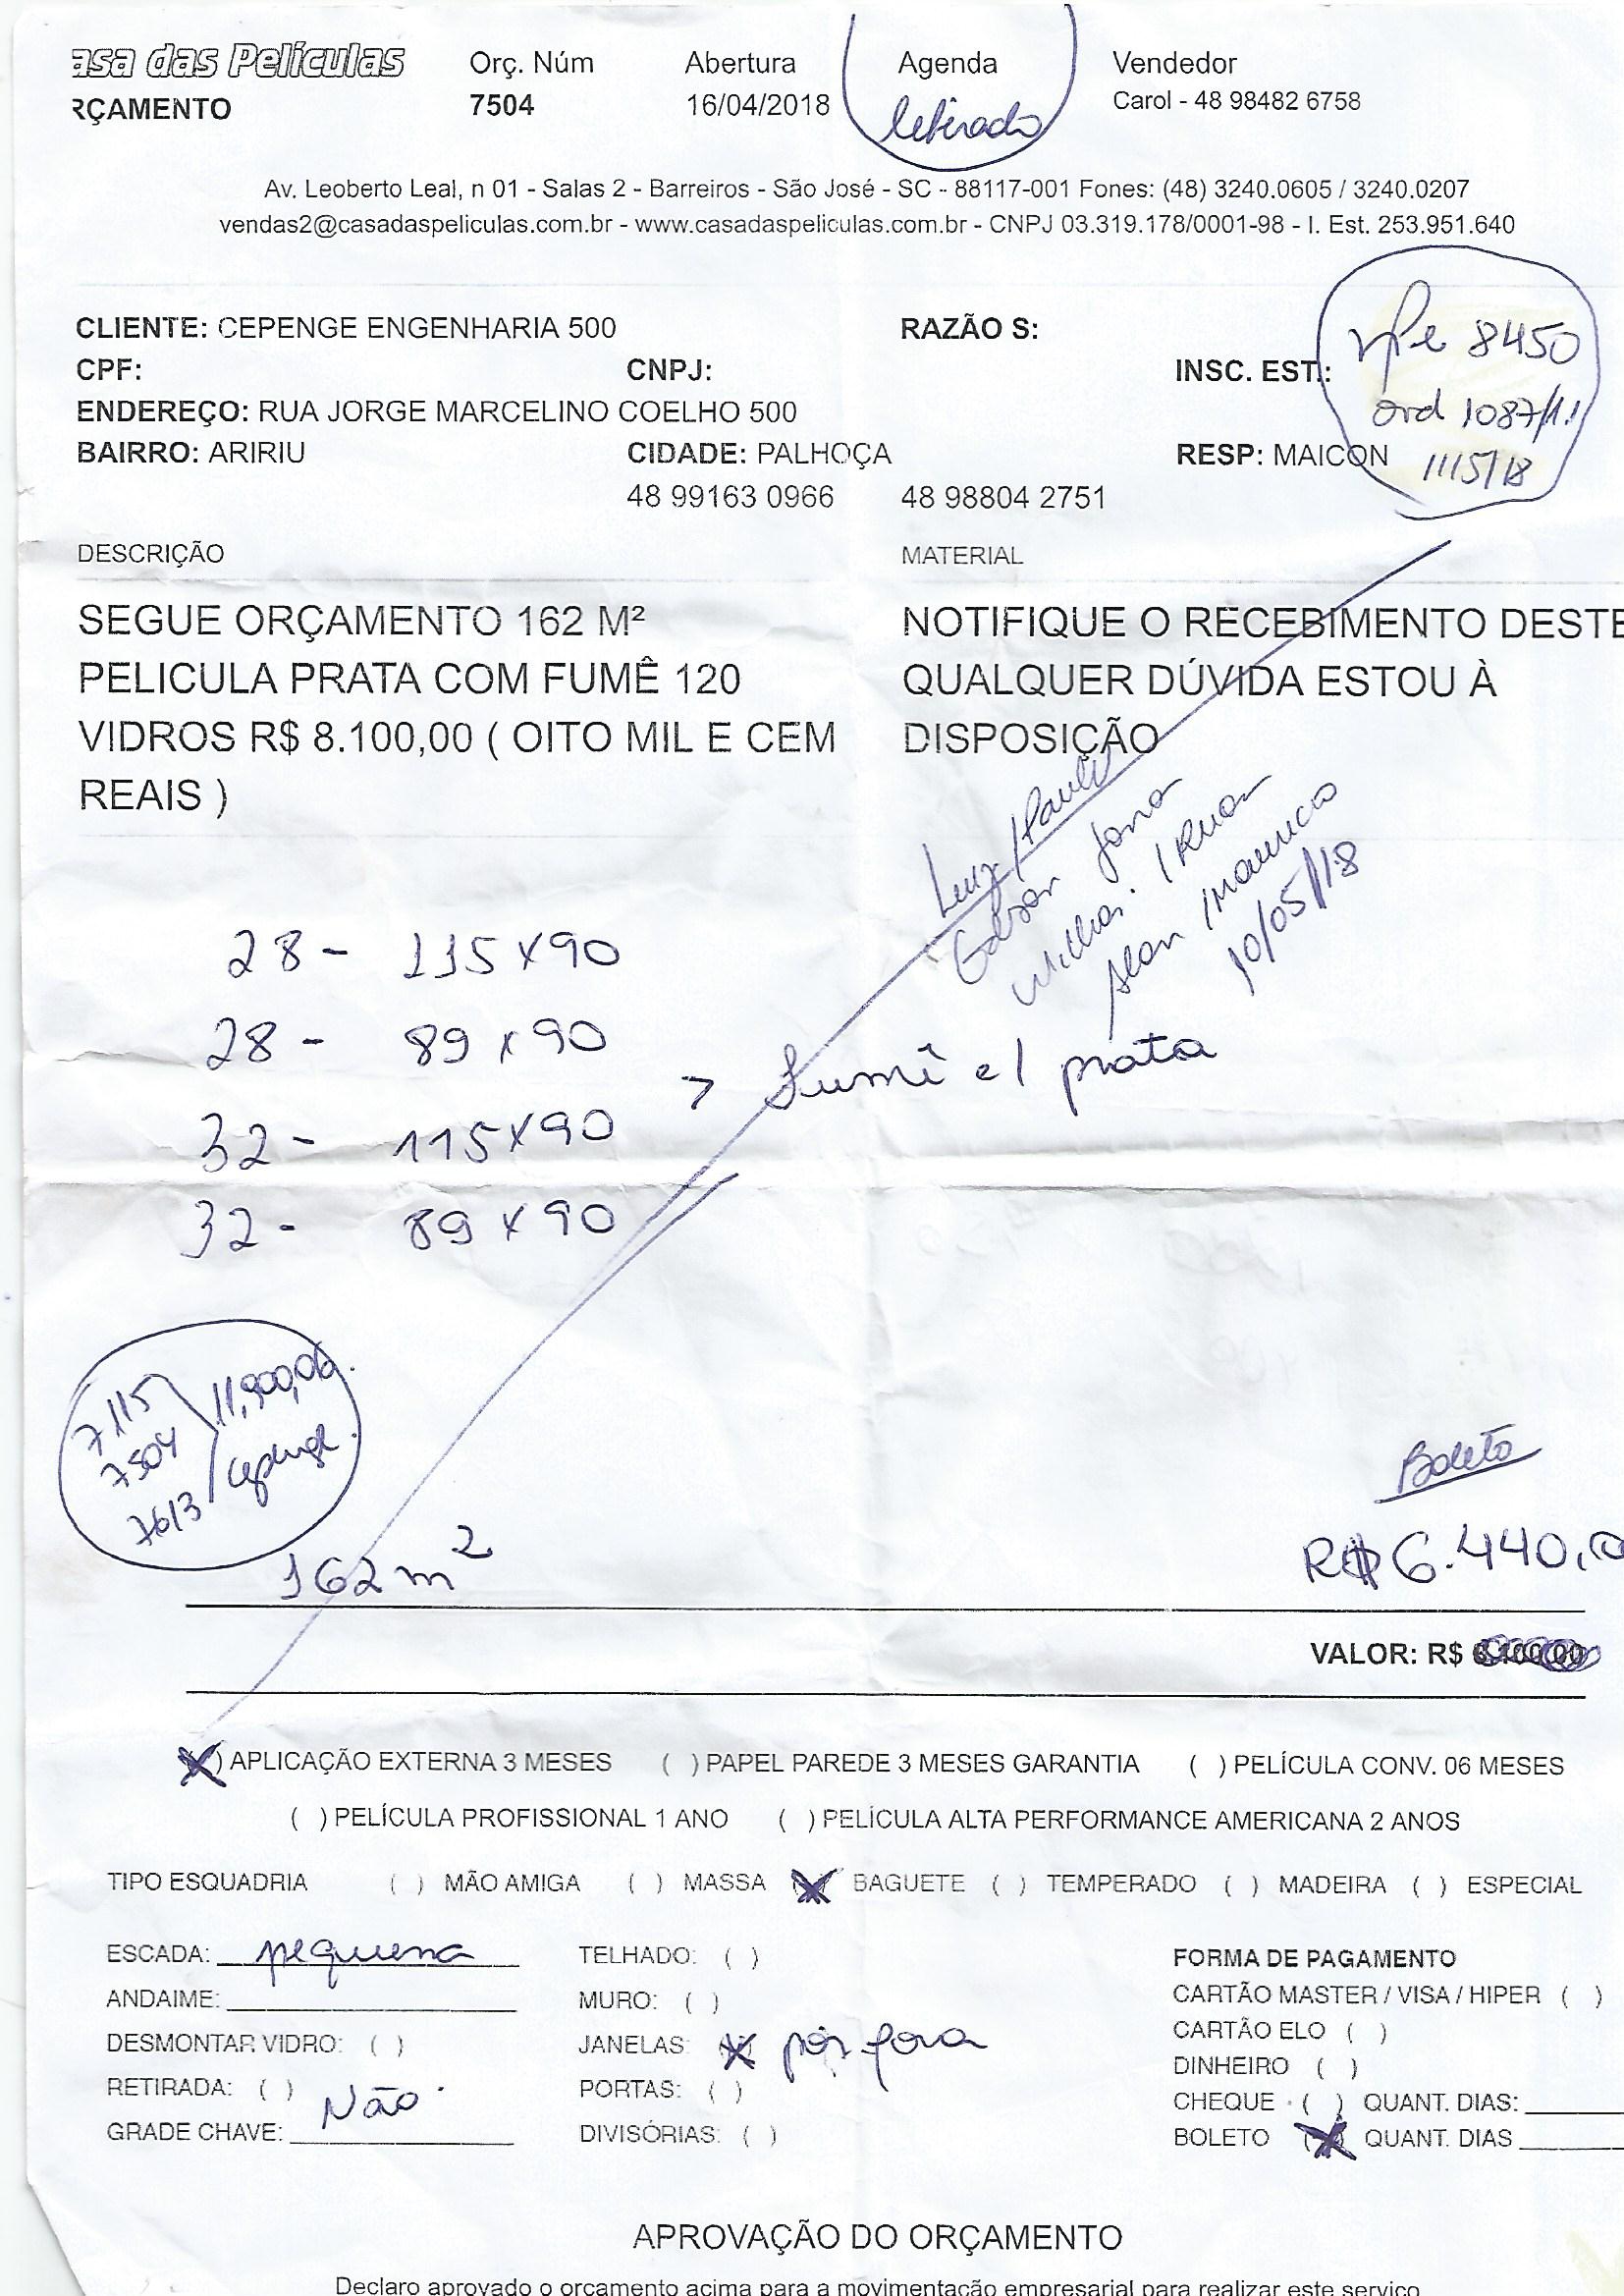 asa das Películas Orç. Núm Abertura Agenda Vendedor
RÇAMENTO 7504 16/04/2018 Carol - 48 98482 6758
Av. Leoberto Leal, n 01 - Salas 2 - Barreiros - São José - SC - 88117-001 Fones: (48) 3240.0605 / 3240.0207
vendas2@casadaspeliculas.com.br - www.casadaspeliculas.com.br - CNPJ 03.319.178/0001-98 - I. Est. 253.951.640
8450
ord 1087/11
11/5/18
CLIENTE: CEPENGE ENGENHARIA 500 RAZÃO S:
CPF: CNPJ: INSC. EST.:
ENDEREÇO: RUA JORGE MARCELINO COELHO 500
BAIRRO: ARIRIU CIDADE: PALHOÇA RESP: MAICON
48 99163 0966 48 98804 2751
DESCRIÇÃO MATERIAL
SEGUE ORÇAMENTO 162 M² NOTIFIQUE O RECEBIMENTO DESTE
PELICULA PRATA COM FUMÊ 120 QUALQUER DÚVIDA ESTOU À
VIDROS R$ 8.100,00 ( OITO MIL E CEM DISPOSIÇÃO
REAIS )
Luiz/Paulo
10/05/18
28 - 115 x 90
28 - 89 x 90
32 - 115 x 90
32 - 89 x 90
> Fumê c/ prata
7115 11,900,00
7504
7613 cepenge
Boleto
162 m² R$ 6.440,0
VALOR: R$ 8.100,00
(X) APLICAÇÃO EXTERNA 3 MESES ( ) PAPEL PAREDE 3 MESES GARANTIA ( ) PELÍCULA CONV. 06 MESES
( ) PELÍCULA PROFISSIONAL 1 ANO ( ) PELÍCULA ALTA PERFORMANCE AMERICANA 2 ANOS
TIPO ESQUADRIA ( ) MÃO AMIGA ( ) MASSA (X) BAGUETE ( ) TEMPERADO ( ) MADEIRA ( ) ESPECIAL
ESCADA: pequena TELHADO: ( ) FORMA DE PAGAMENTO
ANDAIME: MURO: ( ) CARTÃO MASTER / VISA / HIPER ( )
DESMONTAR VIDRO: ( ) JANELAS: (X) por fora CARTÃO ELO ( )
DINHEIRO ( )
RETIRADA: ( ) Não PORTAS: ( ) CHEQUE ( ) QUANT. DIAS:
GRADE CHAVE: DIVISÓRIAS: ( ) BOLETO (X) QUANT. DIAS
APROVAÇÃO DO ORÇAMENTO
Declaro aprovado o orçamento acima para a movimentação empresarial para realizar este serviço